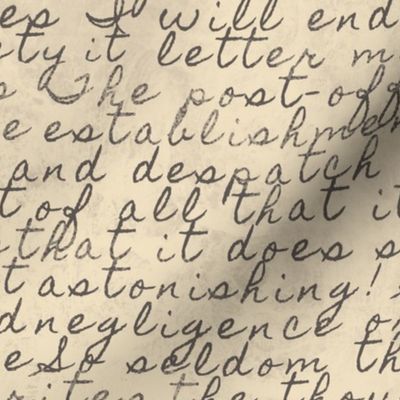 es I will end
ty it letter m
s The post-off
e establishmen
and despatch
t of all that it
that it does s
t astonishing!
dnegligence on
e So seldom th
rites the thou